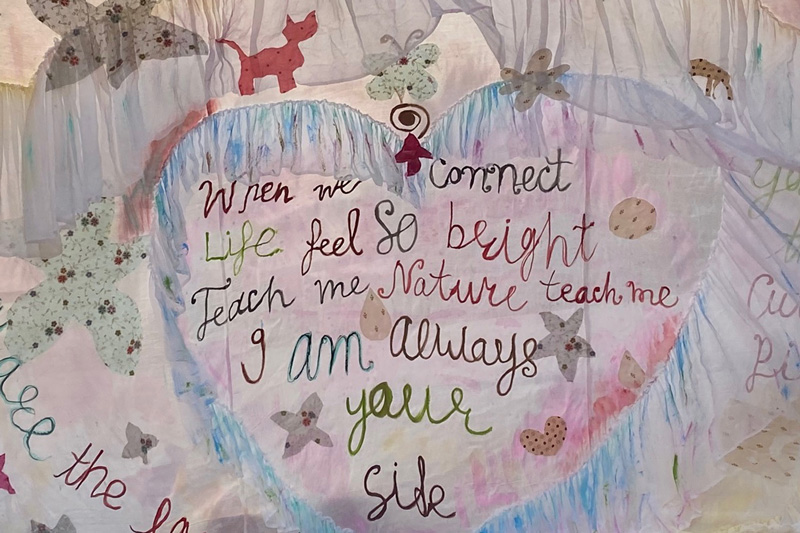 When we connect
Life feel so bright
Teach me Nature teach me
I am always
your
Side
are
the